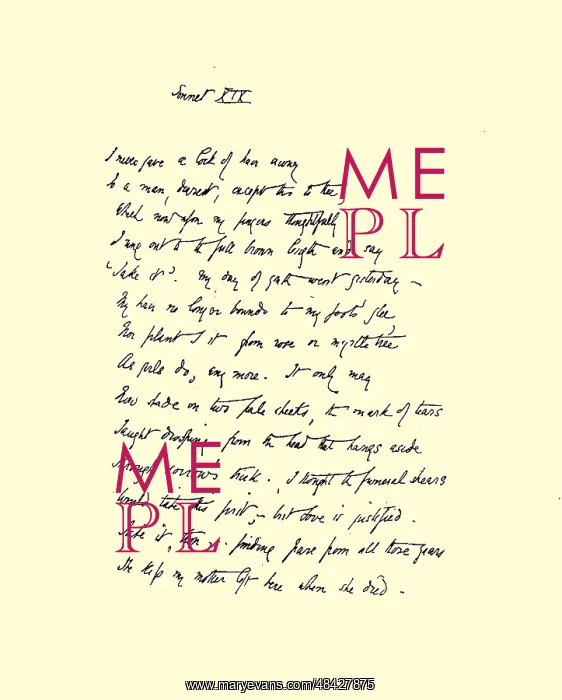 Sonnet XIX
I never gave a lock of hair away
To a man, dearest, except this to thee,
Which now upon my fingers thoughtfully
I ring out to the full brown length and say
'Take it'. My day of youth went yesterday –
My hair no longer bounds to my foot's glee
Nor plant I it from rose or myrtle tree
As girls do, any more. It only may
Now shade on two pale cheeks, the mark of tears
Taught drooping from the head that hangs aside
Through sorrow's trick. I thought the funeral shears
Would take this first, – but love is justified.
Take it, thou .. finding pure from all those years
The kiss my mother left here when she died –
ME
PL
ME
PL
www.maryevans.com/48427875